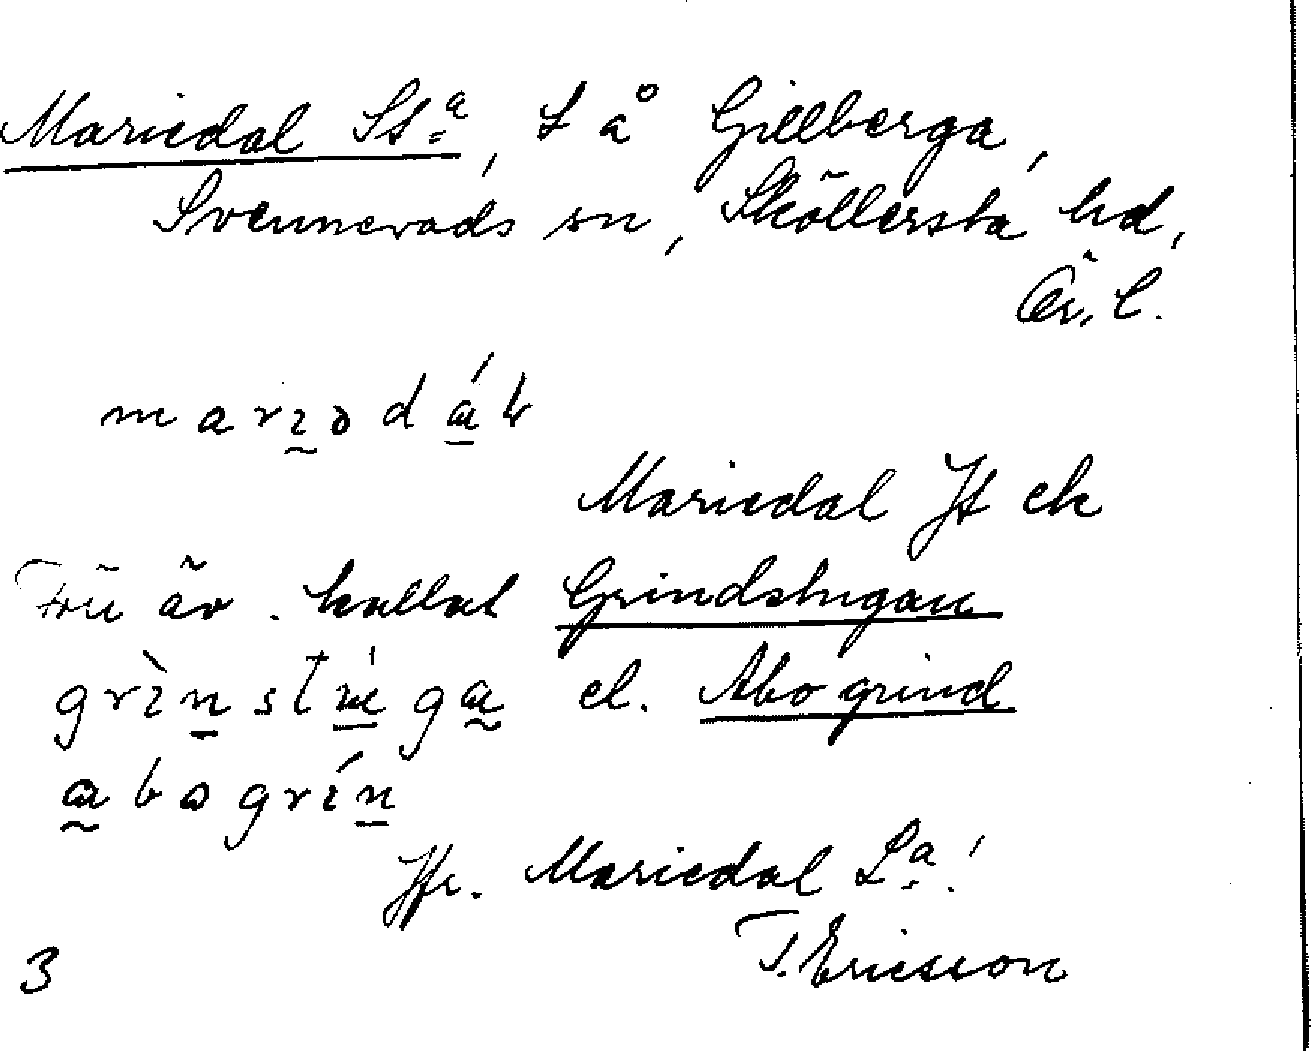 Mariedal St:a, t å Gillberga,
Svennevads sn, Sköllersta hd,
Ör. l.
mariodál
Mariedal Jt ek
även kallat Grindstugan
grìnstúga el. Åbo grind
abogrín
Jfr. Mariedal La!
T. Ericsson
3